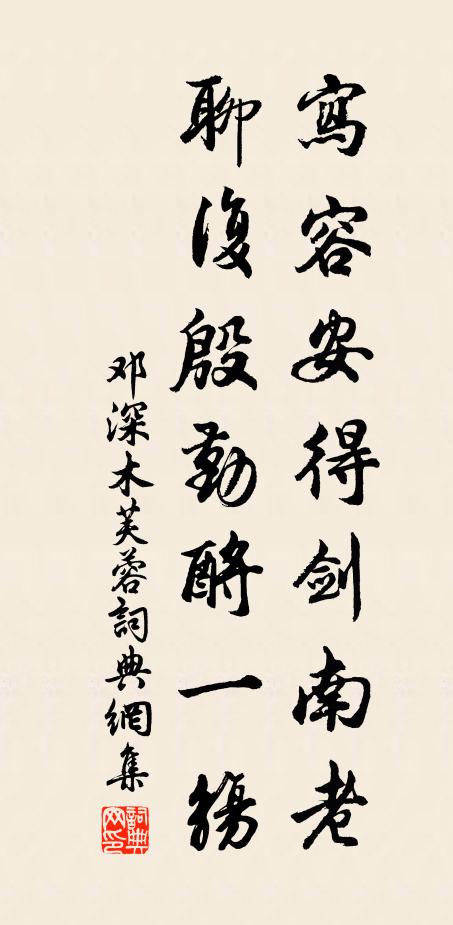 寫容安得劍南老
聊復殷勤酹一觴
邓深木芙蓉詞典網集
詞典网印